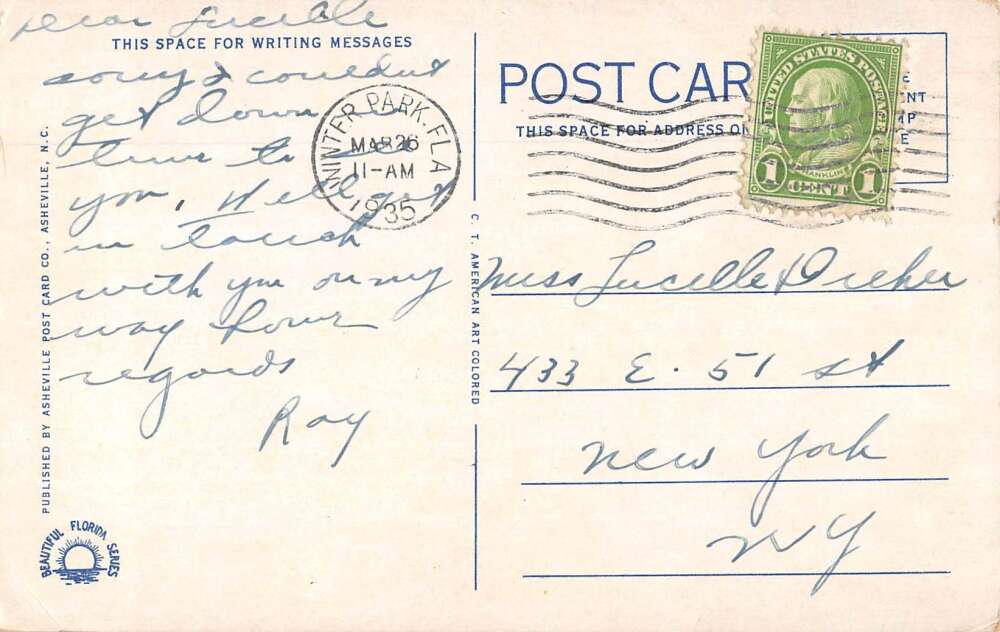 Dear Lucille
THIS SPACE FOR WRITING MESSAGES
sorry I couldn't
get down
time to see
you, I'll get
in touch
with you on my
way home
regards
Ray
PUBLISHED BY ASHEVILLE POST CARD CO., ASHEVILLE, N.C.
BEAUTIFUL FLORIDA SERIES
WINTER PARK, FLA
MAR 26
11-AM
1935
C. T. AMERICAN ART COLORED
POST CAR
THIS SPACE FOR ADDRESS ON
UNITED STATES POSTAGE
FRANKLIN
1 CENT 1
Miss Lucille Dreher
433 E. 51 st
New York
NY